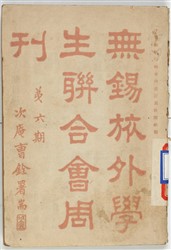 無錫旅外學
生聯合會周
刊
第六期
次庵曹銓署耑